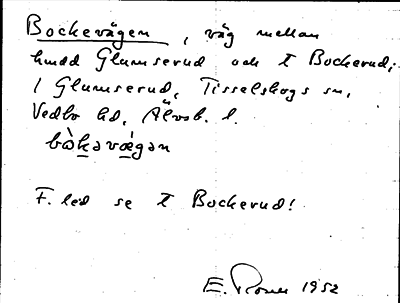 Bockevägen, väg mellan
hmdd Glumserud och t Bockerud;
i Glumserud, Tisselskogs sn,
Vedbo hd, Älvsb. l.
bòkevæ̀gən
F. led se t Bockerud!
E. 1952